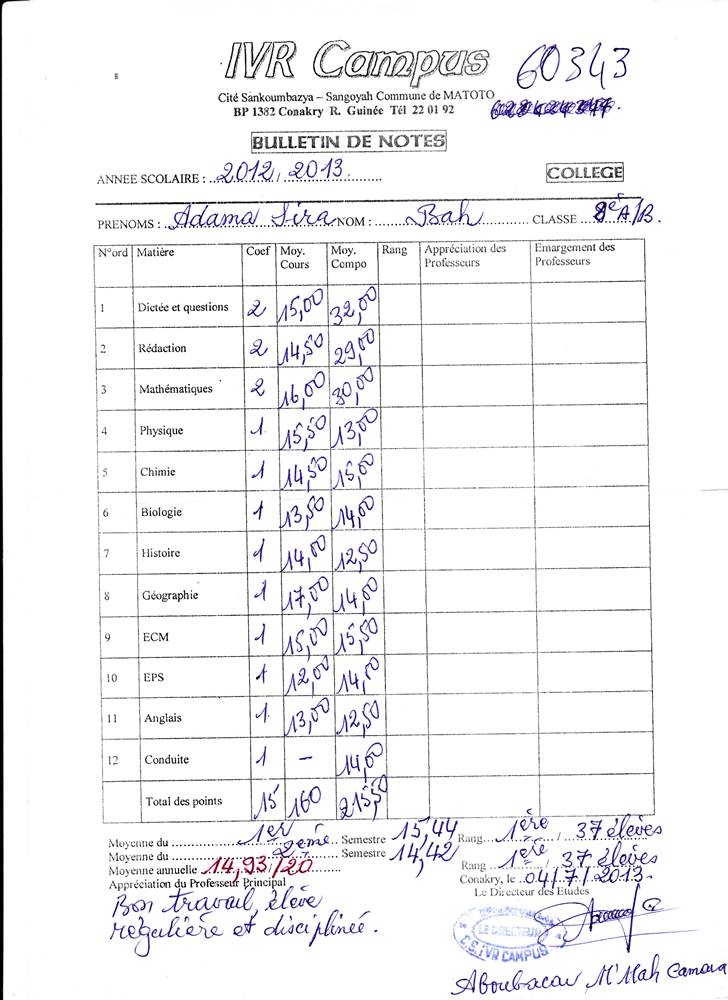 IVR Campus
60343
Cité Sankoumbazya – Sangoyah Commune de MATOTO
BP 1382 Conakry R. Guinée Tél 22 01 92
BULLETIN DE NOTES
ANNEE SCOLAIRE : 2012, 2013.
COLLEGE
PRENOMS : Adama Sira NOM : Bah CLASSE 8è A/B.
N°ord Matière Coef Moy. Cours Moy. Compo Rang Appréciation des Professeurs Emargement des Professeurs
1 Dictée et questions 2 15,00 32,00
2 Rédaction 2 14,50 29,00
3 Mathématiques 2 16,00 30,00
4 Physique 1 15,50 13,00
5 Chimie 1 14,50 15,00
6 Biologie 1 13,50 14,00
7 Histoire 1 14,00 12,50
8 Géographie 1 17,00 14,00
9 ECM 1 15,00 15,50
10 EPS 1 12,00 14,00
11 Anglais 1 13,00 12,50
12 Conduite 1 – 14,00
Total des points 15 160 215,50
Moyenne du 1er Semestre 15,44 Rang 1ère / 37 élèves
Moyenne du 2ème Semestre 14,42 Rang 1ère / 37 élèves
Moyenne annuelle 14,93/20
Conakry, le 04/7/2013.
Appréciation du Professeur Principal
Le Directeur des Etudes
Bon travail, élève
régulière et disciplinée.
LE DIRECTEUR
C.S. IVR CAMPUS
Aboubacar M'Mah Camara